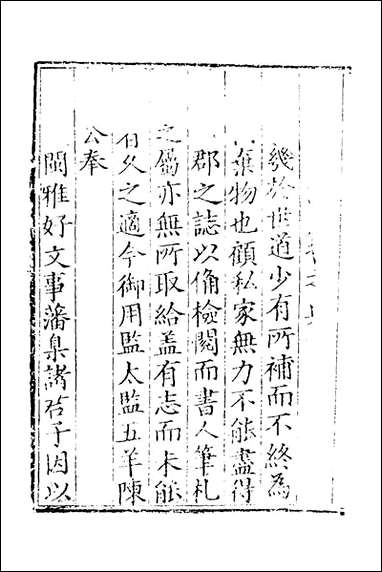 幾於世道少有所補而不終為
棄物也顧私家無力不能盡得
郡之誌以備檢閱而書人筆札
之屬亦無所取給盖有志而未能
有久之適今御用監太監五羊陳
公奉
閩雅好文事藩臬諸君子因以